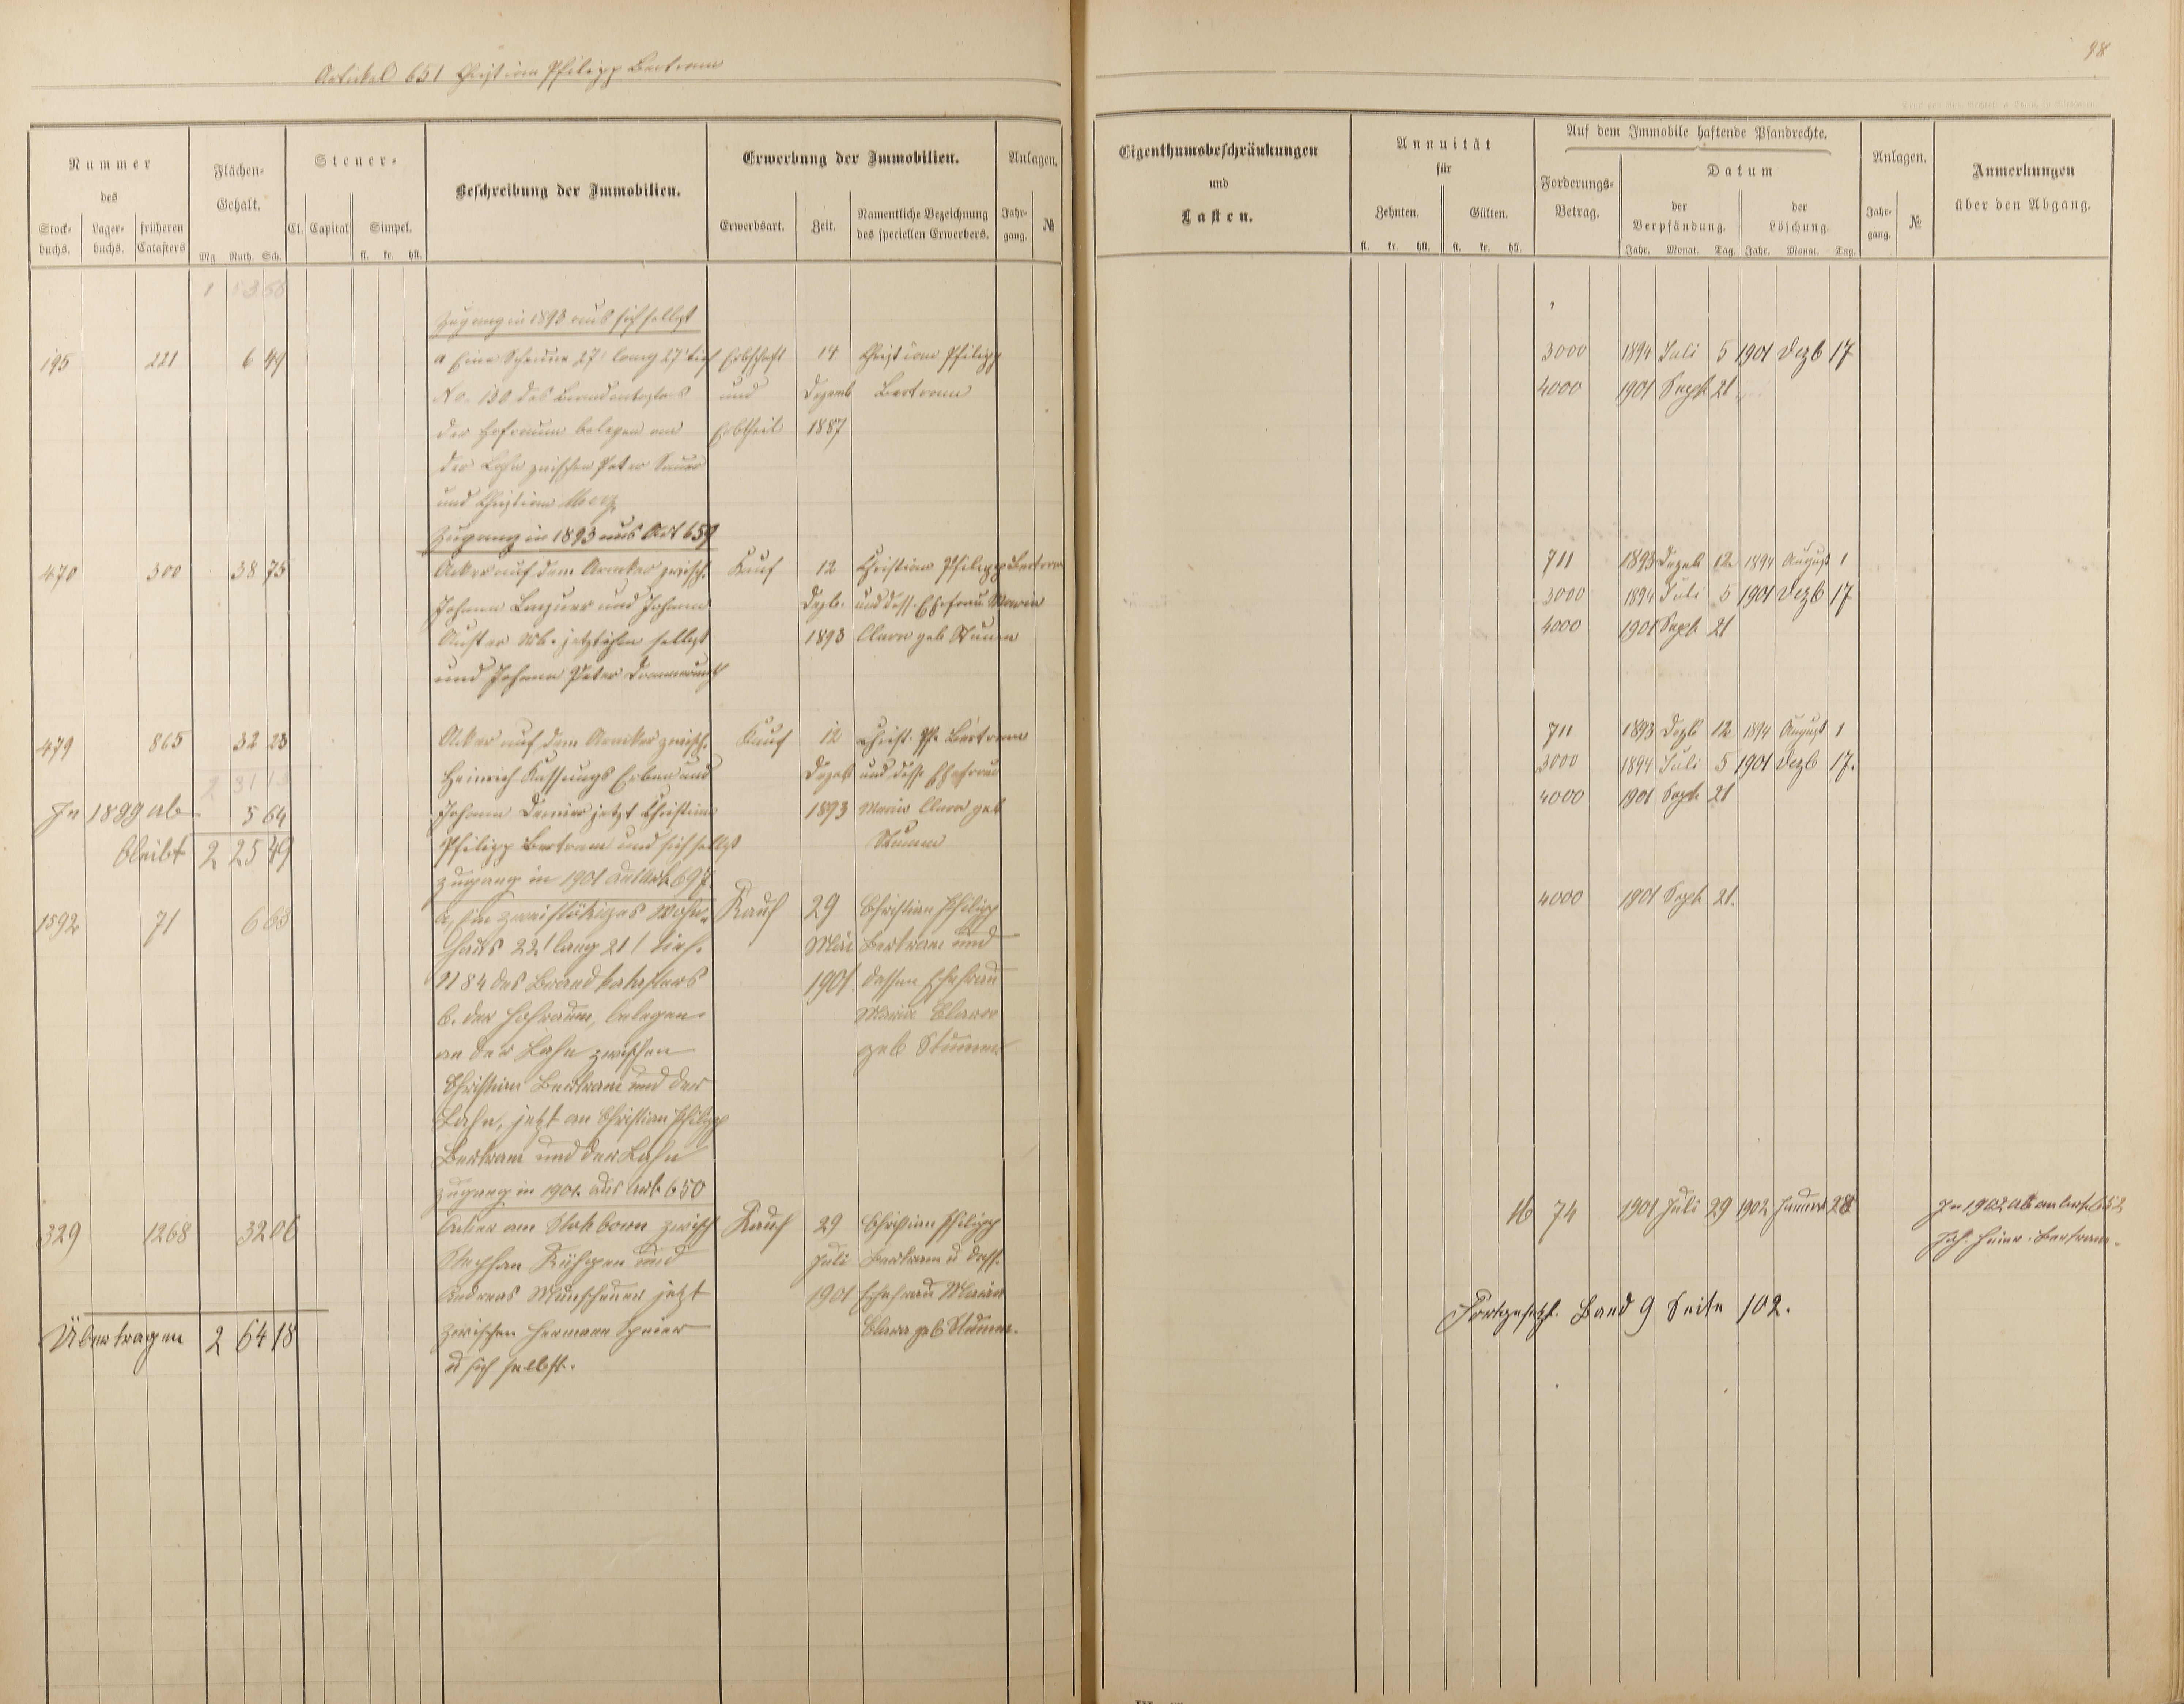 98
Artikel 651 Christian Philipp Bertram
Nummer
des
Stock-
buchs.
Lager-
buchs.
früheren
Catasters
Flächen-
Gehalt.
Mg. Ruth. Sch.
Steuer-
Cl. Capital Simpel.
fl. kr. hll.
Beschreibung der Immobilien.
Erwerbung der Immobilien.
Erwerbsart.
Zeit.
Namentliche Bezeichnung
des speciellen Erwerbers.
Anlagen.
Jahr-
gang.
№
Eigenthumsbeschränkungen
und
Lasten.
Annuität
für
Zehnten. Gülten.
fl. kr. hll. fl. kr. hll.
Auf dem Immobile haftende Pfandrechte.
Forderungs-
Betrag.
Datum
der
Verpfändung.
der
Löschung.
Jahr. Monat. Tag. Jahr. Monat. Tag.
Anlagen.
Jahr-
gang.
№
Anmerkungen
über den Abgang.
1 53 68
Zugang in 1893 aus sich selbst
195 221 6 49
a Eine Scheune 27' lang 27' tief
No. 130 des Brandcatasters
der Hofraum belegen an
der Lahn zwischen Peter
und Christian
Erbschaft
und
Erbtheil
14
Dezemb
1887
Christian Philipp
Bertram
3000 1894 Juli 5 1901 Dezb 17
4000 1901 Sept 21
Zugang in 1893 aus Art 659
470 300 38 75
Acker auf dem zwisch.
Johann und Johann
jetzt selbst
und Johann Peter
Kauf
12
Dezb.
1893
Christian Philipp Bertram
und dess. Ehefrau Maria
Clara geb Stumm
711 1893 Dezb 12 1894 August 1
3000 1894 Juli 5 1901 Dezb 17
4000 1901 Sept 21
479 865 32 23
Acker auf dem zwisch.
Heinrich Erben und
Johann jetzt Christian
Philipp Bertram und sich selbst
Kauf
12
Dezeb
1893
Christ. Ph. Bertram
und dess Ehefrau
Maria Clara geb
Stumm
711 1893 Dezb 12 1894 August 1
3000 1894 Juli 5 1901 Dezb 17.
4000 1901 Sept 21
2 31 13
In 1899 ab 5 64
bleibt 2 25 49
Zugang in 1901 aus Art. 697.
1592 71 6 63
a, Ein zweistökiges Wohn-
haus 22' lang 21' tief.
N 84 des Brandkatasters
b. der Hofraum, belegen
an der Lahn zwischen
Christian Bertram und der
Lahn, jetzt an Christian Philipp
Bertram und der Lahn
Kauf
29
Mai
1901.
Christian Philipp
Bertram und
dessen Ehefrau
Maria Clara
geb Stumm
4000 1901 Sept 21.
Zugang in 1901. aus Art. 650
329 1268 32 06
Acker am zwisch
Stephan und
Andreas jetzt
zwischen Hermann
u sich selbst.
Kauf
29
Juli
1901
Christian Philipp
Bertram u dess.
Ehefrau Maria
Clara geb Stumm.
16 74 1901 Juli 29 1902 Januar 28
In 1902 ab an Art. 652
Joh. Heinr. Bertram.
Übertragen 2 64 18
Fortgesetzt. Band 9 Seite 102.